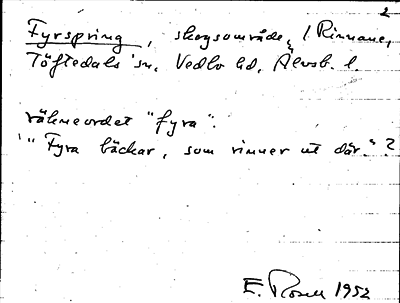 2
Fyrspring, skogsområde, i Rinnane,
Töftedals sn, Vedbo hd, Älvsb. l.
räkneordet "fyra".
"Fyra bäckar, som rinner ut där."?
E. Rosell 1952